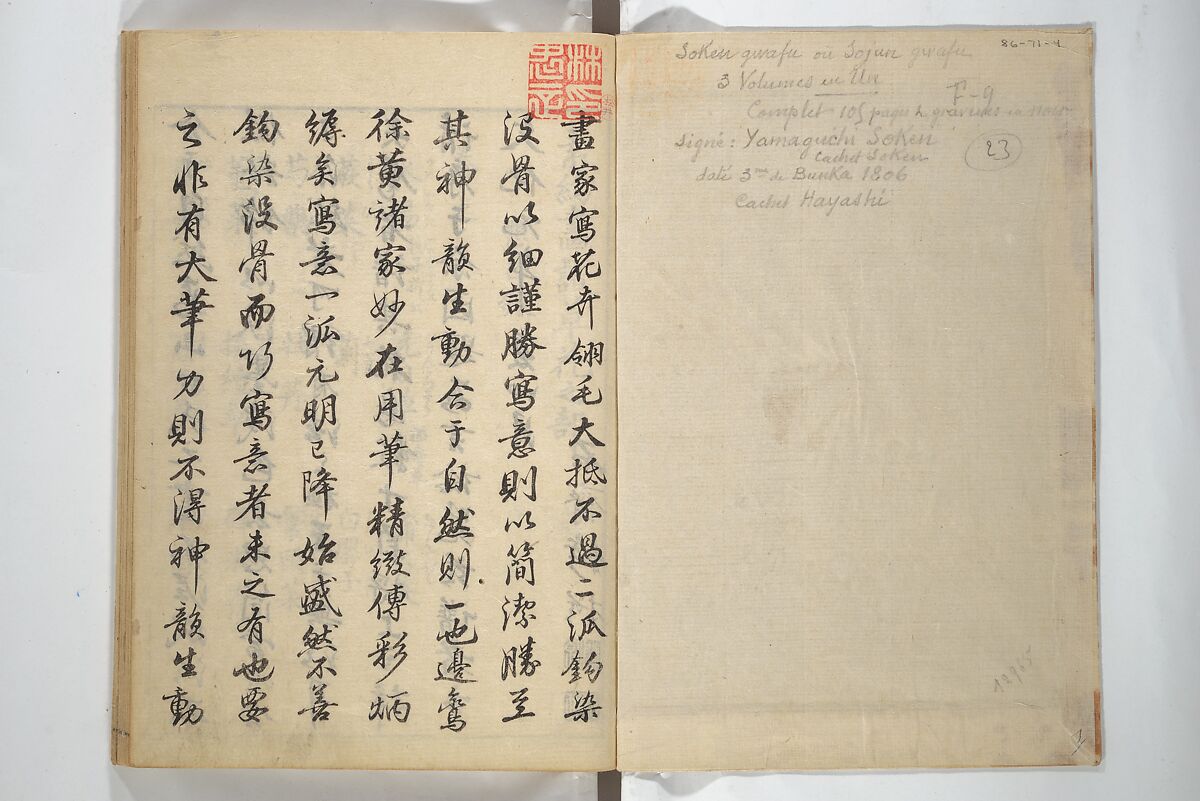 畫家寫花卉翎毛大抵不過二派鉤染
没骨以細謹勝寫意則以簡潔勝至
其神韻生動合于自然則一也邊鸞
徐黄諸家妙在用筆精緻傳彩炳
縟矣寫意一派元明已降始盛然不善
鉤染没骨而巧寫意者未之有也要
之非有大筆力則不得神韻生動
86-71-4
Soken gwafu ou Sojun gwafu
3 Volumes en Un
F-9
Complet 105 pages gravures en noir
Signé: Yamaguchi Soken
Cachet Soken
23
daté 3me de Bunka 1806
Cachet Hayashi